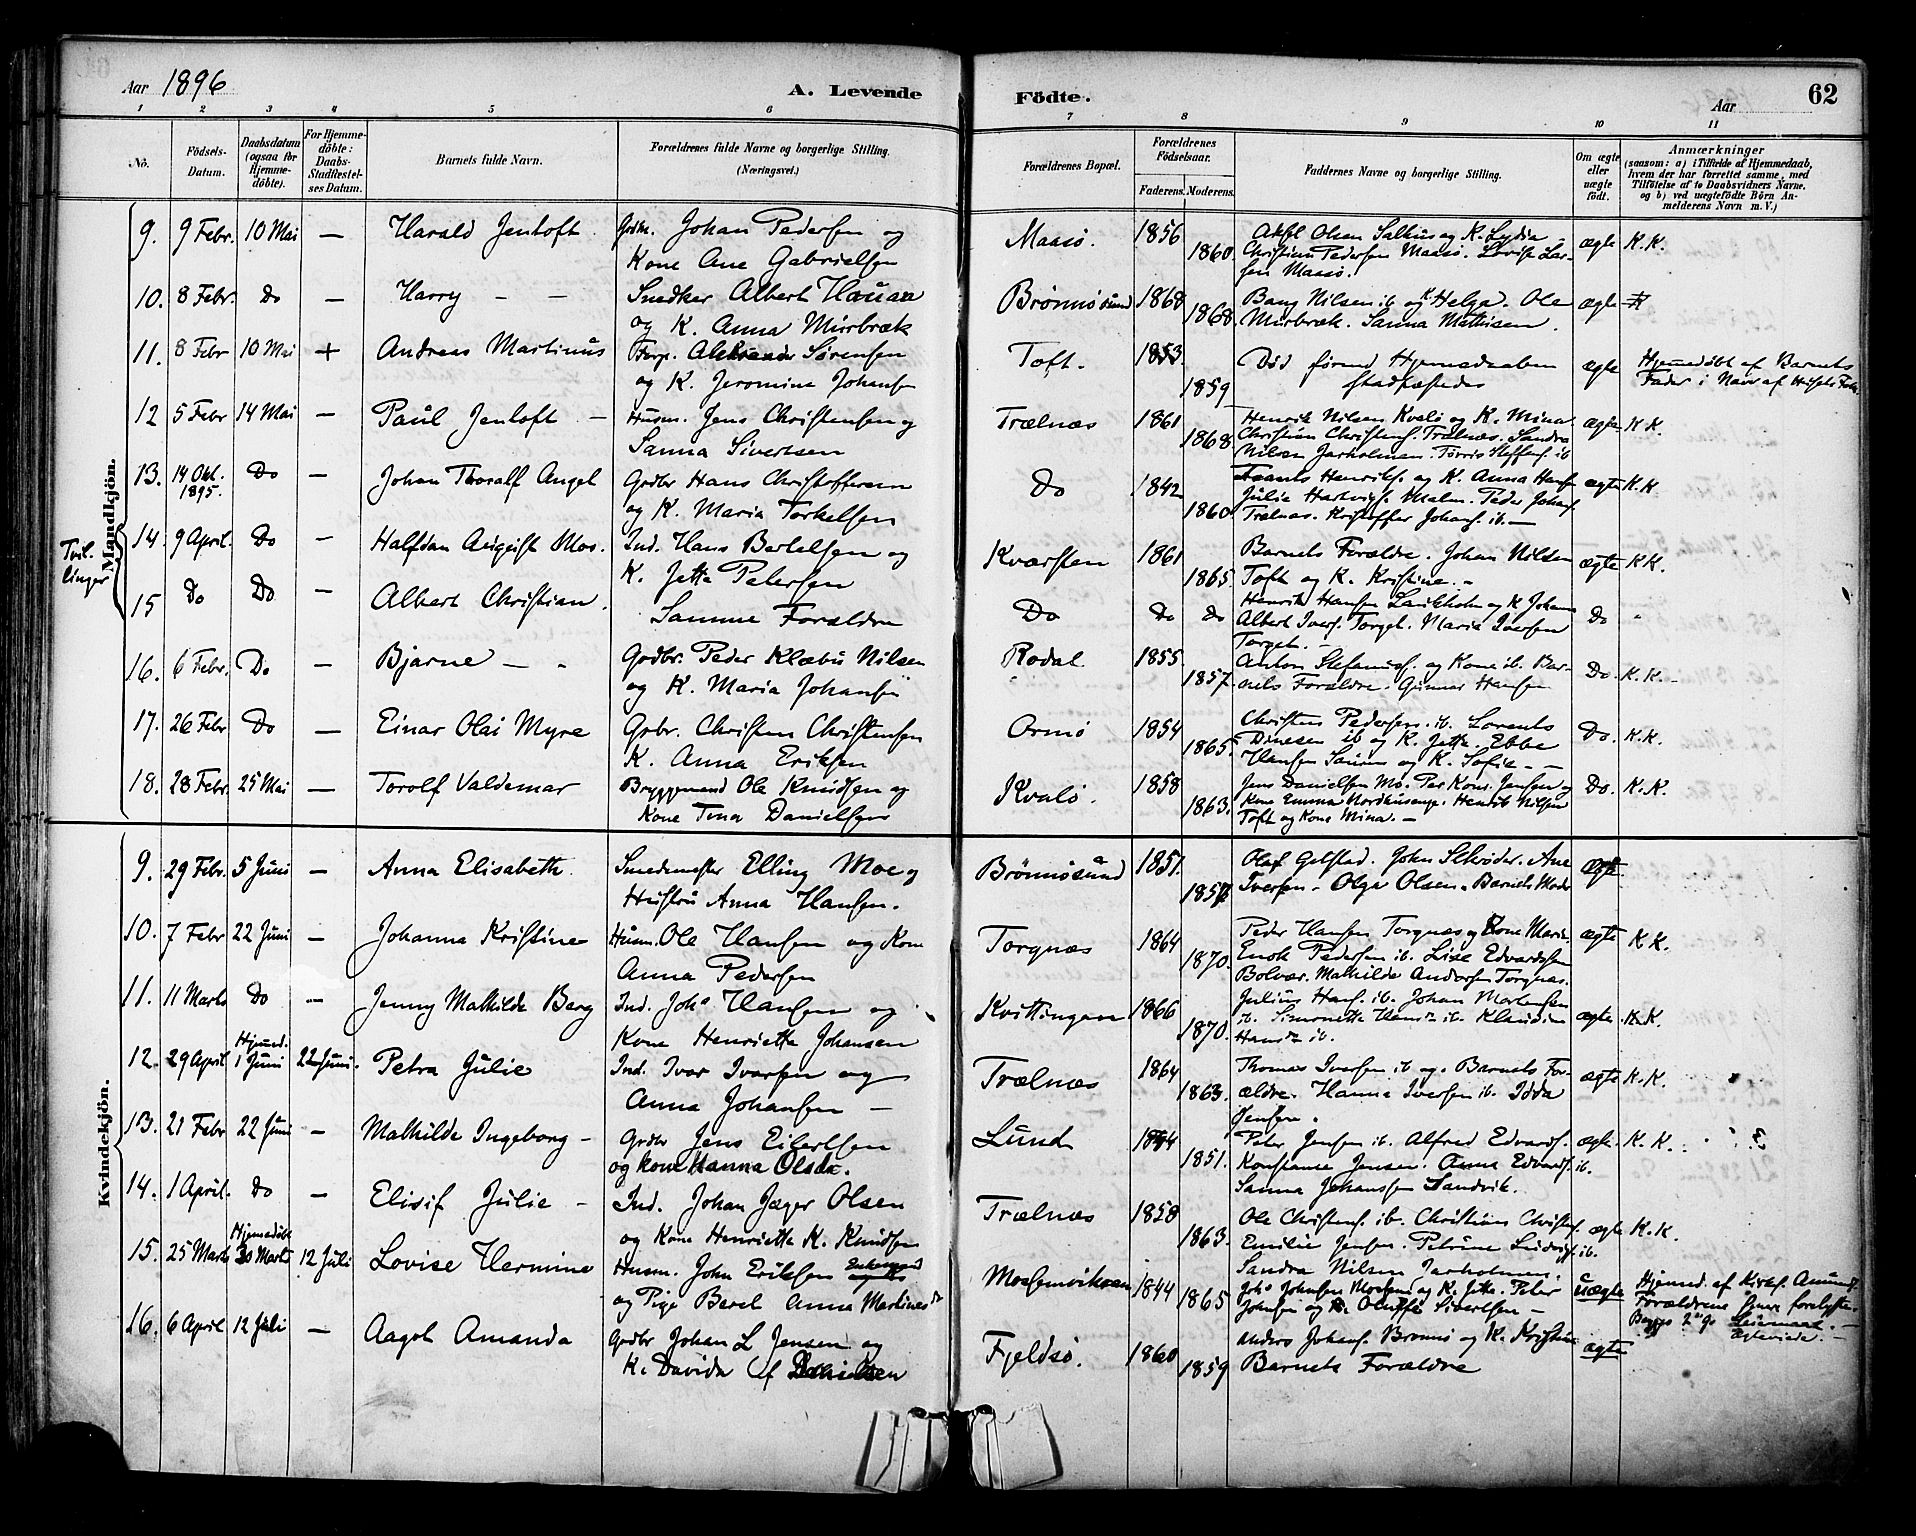 Aar 1896
A. Levende
Födte.
Aar
62
1 2 3 4 5 6 7 8 9 10 11
No.
Födsels-Datum.
Daabsdatum (ogsaa for Hjemme-döbte).
For Hjemme-döbte: Daabs-Stadfæstel-ses Datum.
Barnets fulde Navn.
Forældrenes fulde Navne og borgerlige Stilling. (Næringsvei.)
Forældrenes Bopæl.
Forældrenes Födselsaar.
Faderens. Moderens.
Faddernes Navne og borgerlige Stilling.
Om ægte eller uægte födt.
Anmærkninger
(saasom: a) i Tilfælde af Hjemmedaab, hvem der har forrettet samme, med Tilföielse af to Daabsvidners Navne, og b) ved uægtefödte Börn An-melderens Navn m. V.)
Mandkjön.
9. 9 Febr. 10 Mai — Harald Jentoft. Johan Pedersen og Maasø. 1856
Kone Ane Gabrielsen 1860. Christian Pedersen Maasø. Lovise Lar-
sen Maasø. ægte K.K.
10. 8 Febr. Do — Harry — — Snedker Albert Hauan Brønnøsund 1868 Bang Nilsen ib og K Helga. Ole ægte
og K. Anna Murbræk 1868. Murbræk. Sanna Mathisen.
11. 8 Febr 10 Mai + Andreas Martinus Sørensen Toft. 1853. Død førend Hjemmedaaben ægte Hjemmedøbt af Barnets
og K. Jeromine Johansen 1859 stadfæstedes Fader i Navn af
12 5 Febr 14 Mai — Paul Jentoft — Husm. Jens Christensen og Trælnæs 1861 Henrik Nilsen Kvalø og K. Mina ægte K K.
Sanna Sivertsen 1868 Christian Christens. Trælnæs. Sandra
Nilsen Jarholmen.
13. 14 Okt. 1895. Do — Johan Thoralf Angel Grdbr Hans Christoffersen Do 1842 Henriks. og K. Anna Hansen ægte K.K
og K. Maria Torkelsen 1860 Julie Hartvigs. Malm. Peder Johans.
Trælnæs. Kristoffer Johans. ib. —
Tvil-
linger
14. 9 April. Do — Halfdan August Mos. Ind. Hans Bertelsen og 1861 Barnets Forældre. Johan Nilsen ægte KK.
K. Jette Petersen 1865 Toft og K. Kristine. —
15 Do Do — Albert Christian. Samme Forældre Do Do Do Henrik Hansen og K Johanna Do
Albert Ivers. Torget. Maria Iversen
Torget. —
16. 6 Febr. Do — Bjarne — Grdbr. Peder Klæbu Nilsen Rodal 1855 Anton og Kone ib. Bar- Do. K.K. —
og K. Maria Johansen 1857. nets Forældre. Gunnar Hansen
17. 26 Febr Do — Einar Olai Myre Grbr. Christen Christensen Ormø 1854 Christen Pedersen ib. Lorents Do. K.K.
K. Anna Eriksen 1865. Dinesen ib og K. Jetta. Ebbe
Hansen og K. Sofie — —
18. 28 Febr. 25 Mai — Torolf Valdemar Bryggemand Ole Knudsen og Kvalø. 1858 Jens Danielsen Mo. Per Jensen og Do. K.K.
Kone Tina Danielsen 1863. Kone Emma. Henrik Nilsen
Toft og Kone Mina. —
Kvindekjön.
9. 29 Febr. 5 Juni — Anna Elisabeth. Smedemester Elling Moe og Brønnøsund 1857. Olaf Gelstad. John Schrøder. Ane ægte
Hustru Anna Hansen. 1857 Iversen. Olga Olsen. Barnets Moder
10. 7 Febr 22 Juni — Johanna Kristine Husm. Ole Hansen og Kone Torgnæs 1864 Peder Hansen Torgnæs og Kone Marie. ægte K K.
Anna Pedersen 1870. Enok Pedersen ib. Lise Edvardsen
Bolvær. Mathilde Andersen Torgnæs.
11. 11 Marts Do — Jenny Mathilde Berg Ind. Johs Hansen og Kvittingen 1866 Julius Hans. ib. Johan Mortensen ægte. K.K.
Kone Henriette Johansen 1870. ib. Simonette ib.
12. 29 April Hjemd. 1 Juni 22 Juni. Petra Julie Ind. Ivar Ivarsen og Trælnæs 1864 Thomas Iversen ib og Barnets For- ægte K.K.
Anna Johansen — 1863. ældre. Hanna Iversen ib.
Jensen.
13. 21 Febr 22 Juni — Mathilde Ingeborg — Grdbr Jens Eilertsen Lund Peter Jensen ib. Alfred Edvards. ægte. K.K.
og kone Hanna Olsdr. 1851. Konstanse Jensen. Anna Edvards. ib.
Sanna Johanssen Sandvik.
14. 1 April. Do — Elisif Julie — Ind. Johan Jæger Olsen Trælnæs 1858 Ole Christens. ib. Christian ægte K.K.
og Kone Henriette K. Knudsen 1863. Emilie Jensen. Petrine ib.
Sandra Nilsen Jarholmen.
15. 25 Marts Hjemmedøbt 30 Marts 12 Juli Lovise Hermine Husm. John Eriksen Enkemand 1844 Johs Johansen og K. Jette. Peter uægte Hjemmed. af Kirkes.
og Pige Berel Anna 1865 Johnsen og K. Sivertsen — Forældrene
Begges 2den Leiermaal. —
16. 6 April 12 Juli — Aagot Amanda Grdbr Johan L Jensen og Fjeldsø. 1860 Anders Johans. Brønnø og K. Kristine ægte
K. Davida 1859 Barnets Forældre